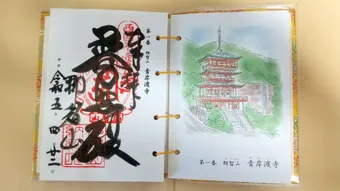 第一番 那智山 青岸渡寺
奉拝
普照殿
那智山
令和五 四 廿二
第一番 那智山 青岸渡寺